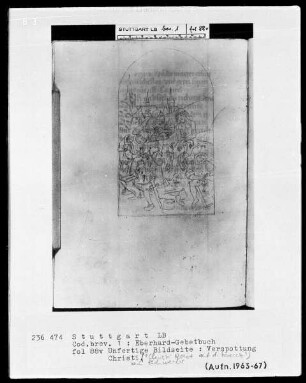 STUTTGART LB Brev. 1 fol 88v
236 474 Stuttgart LB
Cod.brev. 1 : Eberhard-Gebetbuch
fol 88v Unfertige Bildseite : Verspottung
Christi
(Aufn.1965-67)